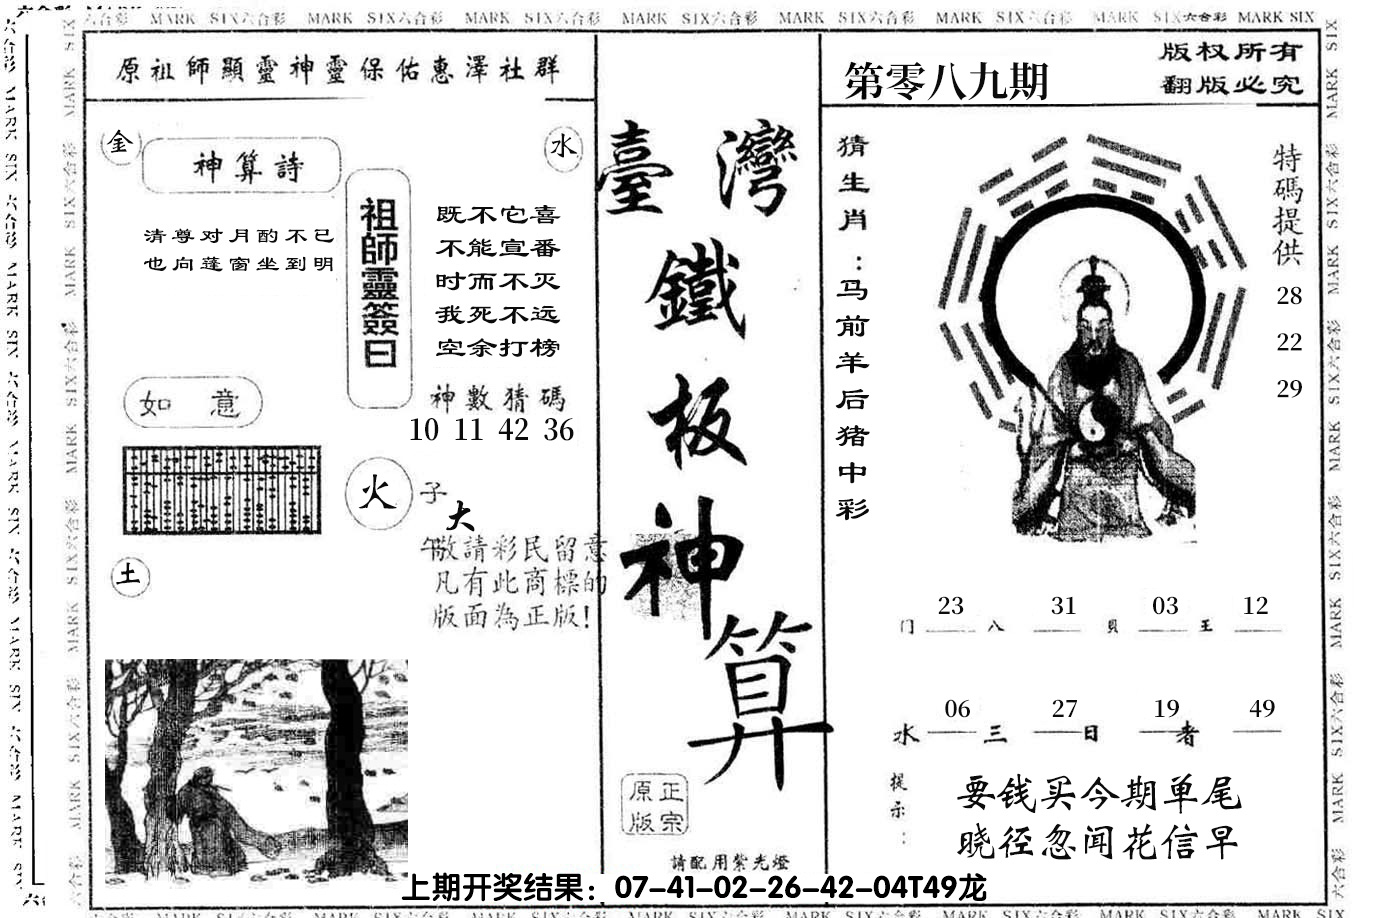 MARK SIX六合彩 MARK SIX六合彩 MARK SIX六合彩 MARK SIX六合彩 MARK SIX六合彩 MARK SIX六合彩 MARK SIX六合彩 MARK SIX
原祖師顯靈神靈保佑惠澤社群
金
神算詩
水
清尊对月酌不已
也向蓬窗坐到明
祖師靈簽曰
既不它喜
不能宣番
时而不灭
我死不远
空余打榜
神數猜碼
10 11 42 36
如 意
火
土
子
大
午
敬請彩民留意
凡有此商標的
版面為正版!
臺灣
鐵
板
神
算
正宗
原版
請配用紫光燈
第零八九期
版权所有
翻版必究
猜生肖：马前羊后猪中彩
特碼提供
28
22
29
门 23 八 31 貝 03 王 12
水 06 三 27 日 19 者 49
提示：
要钱买今期单尾
晓径忽闻花信早
上期开奖结果：07-41-02-26-42-04T49龙